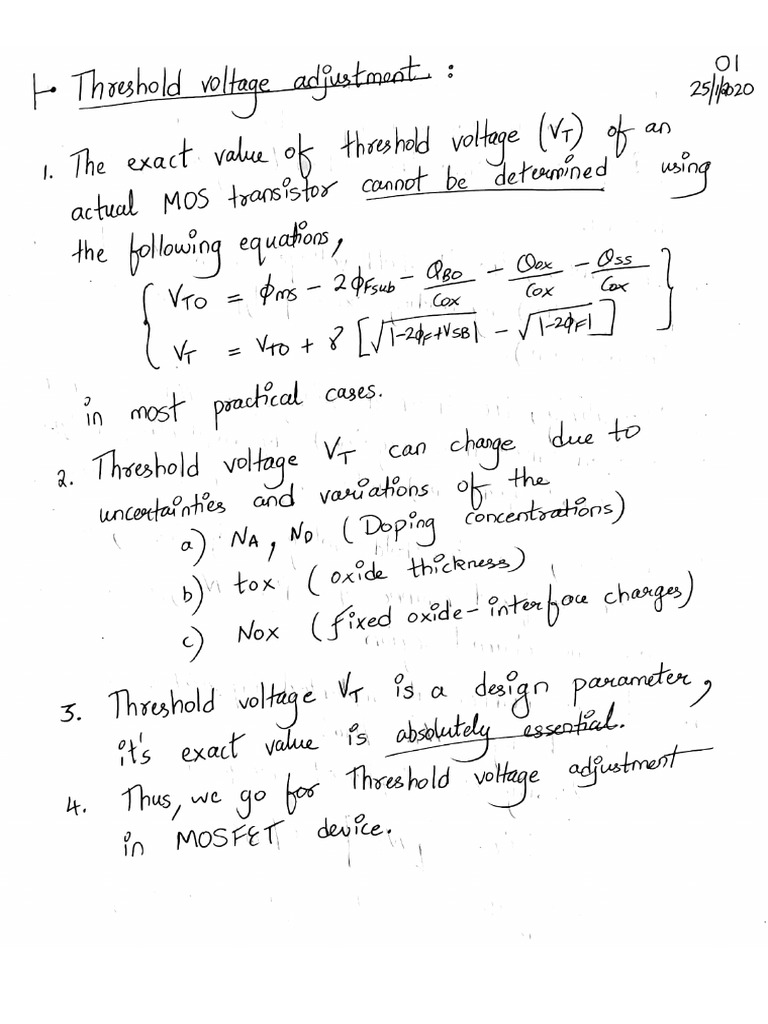 01
25/1/2020
1. Threshold voltage adjustment :
1. The exact value of threshold voltage (VT) of an
actual MOS transistor cannot be determined using
the following equations,
{ VTO = φms - 2φFsub - QBO/Cox - Qox/Cox - QSS/Cox
VT = VTO + γ [√|-2φF+VSB| - √|-2φF|] }
in most practical cases.
2. Threshold voltage VT can change due to
uncertainties and variations of the
a) NA, ND (Doping concentrations)
b) tox (oxide thickness)
c) Nox (fixed oxide-interface charges)
3. Threshold voltage VT is a design parameter,
it's exact value is absolutely essential.
4. Thus, we go for Threshold voltage adjustment
in MOSFET device.